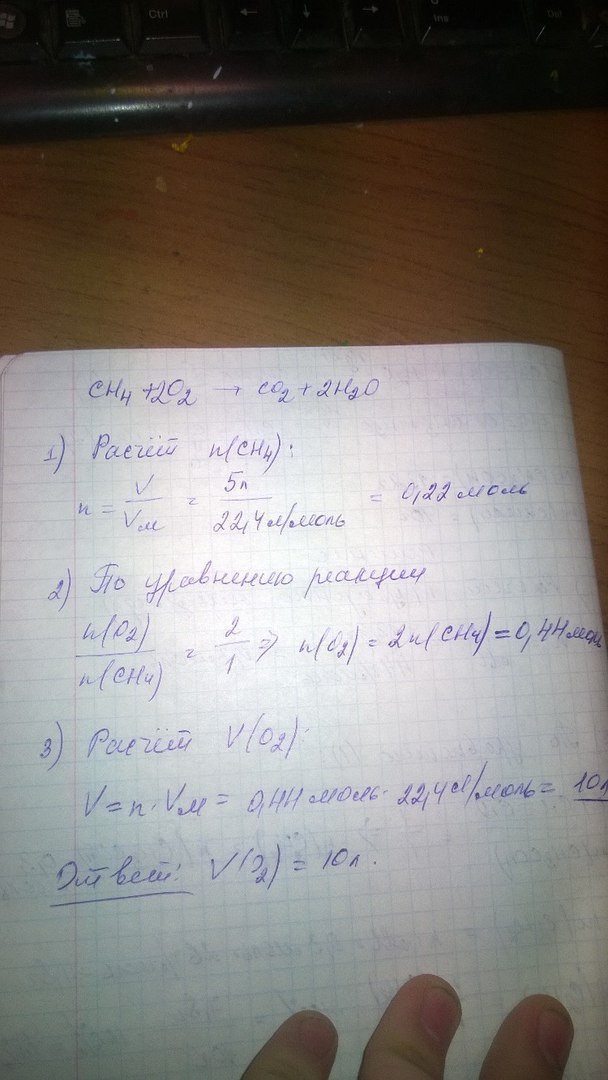 Ctrl
Ins
Del
CH₄ + 2O₂ → CO₂ + 2H₂O
1) Расчёт n(CH₄):
n = V/Vм = 5л/22,4 л/моль = 0,22 моль
2) По уравнению реакции
n(O₂)/n(CH₄) = 2/1 => n(O₂) = 2n(CH₄) = 0,44 моль
3) Расчёт V(O₂):
V = n · Vм = 0,44 моль · 22,4 л/моль = 10л
Ответ: V(O₂) = 10л.